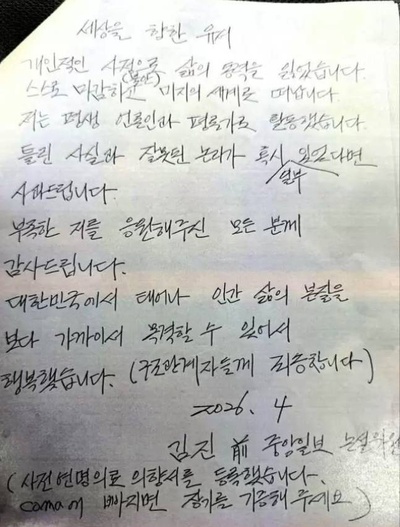 세상을 향한 유서
개인적인 사정으로 삶의 동력을 잃었습니다.
스스로 마감하고 (불안) 미지의 세계로 떠납니다.
저는 평생 언론인과 평론가로 활동했습니다.
틀린 사실과 잘못된 논리가 혹시 일부 있었다면
사과드립니다.
부족한 저를 응원해주신 모든 분께
감사드립니다.
대한민국에서 태어나 인간 삶의 본질을
보다 가까이서 목격할 수 있어서
행복했습니다. (구조관계자들께 죄송합니다)
2026. 4
김진 前 중앙일보 논설위원
(사전연명의료 의향서를 등록했습니다.
coma에 빠지면 장기를 기증해 주세요)